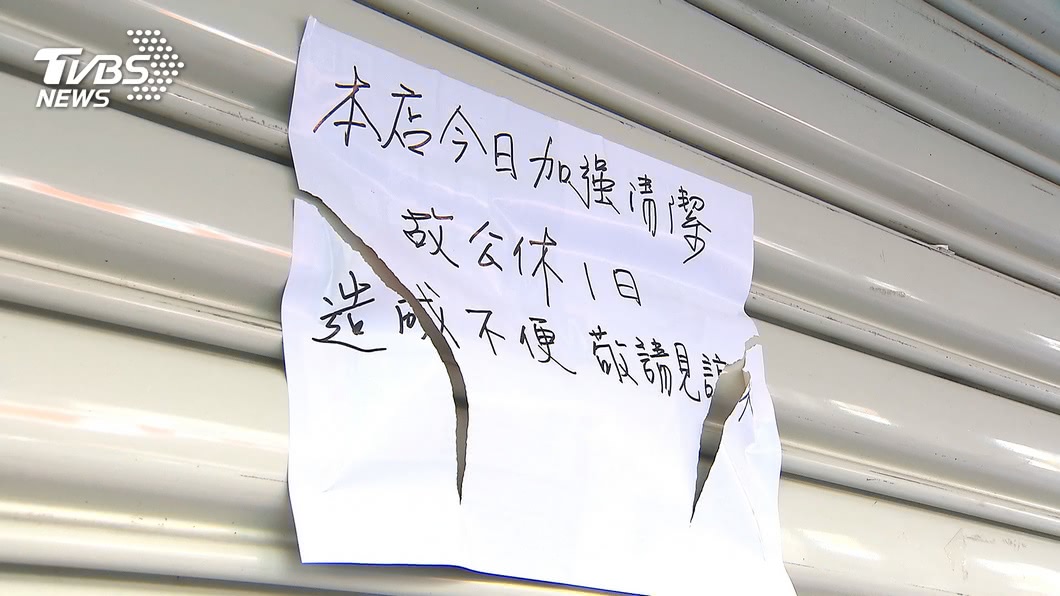 TVBS
NEWS
本店今日加强清潔
故公休1日
造成不便 敬請見諒